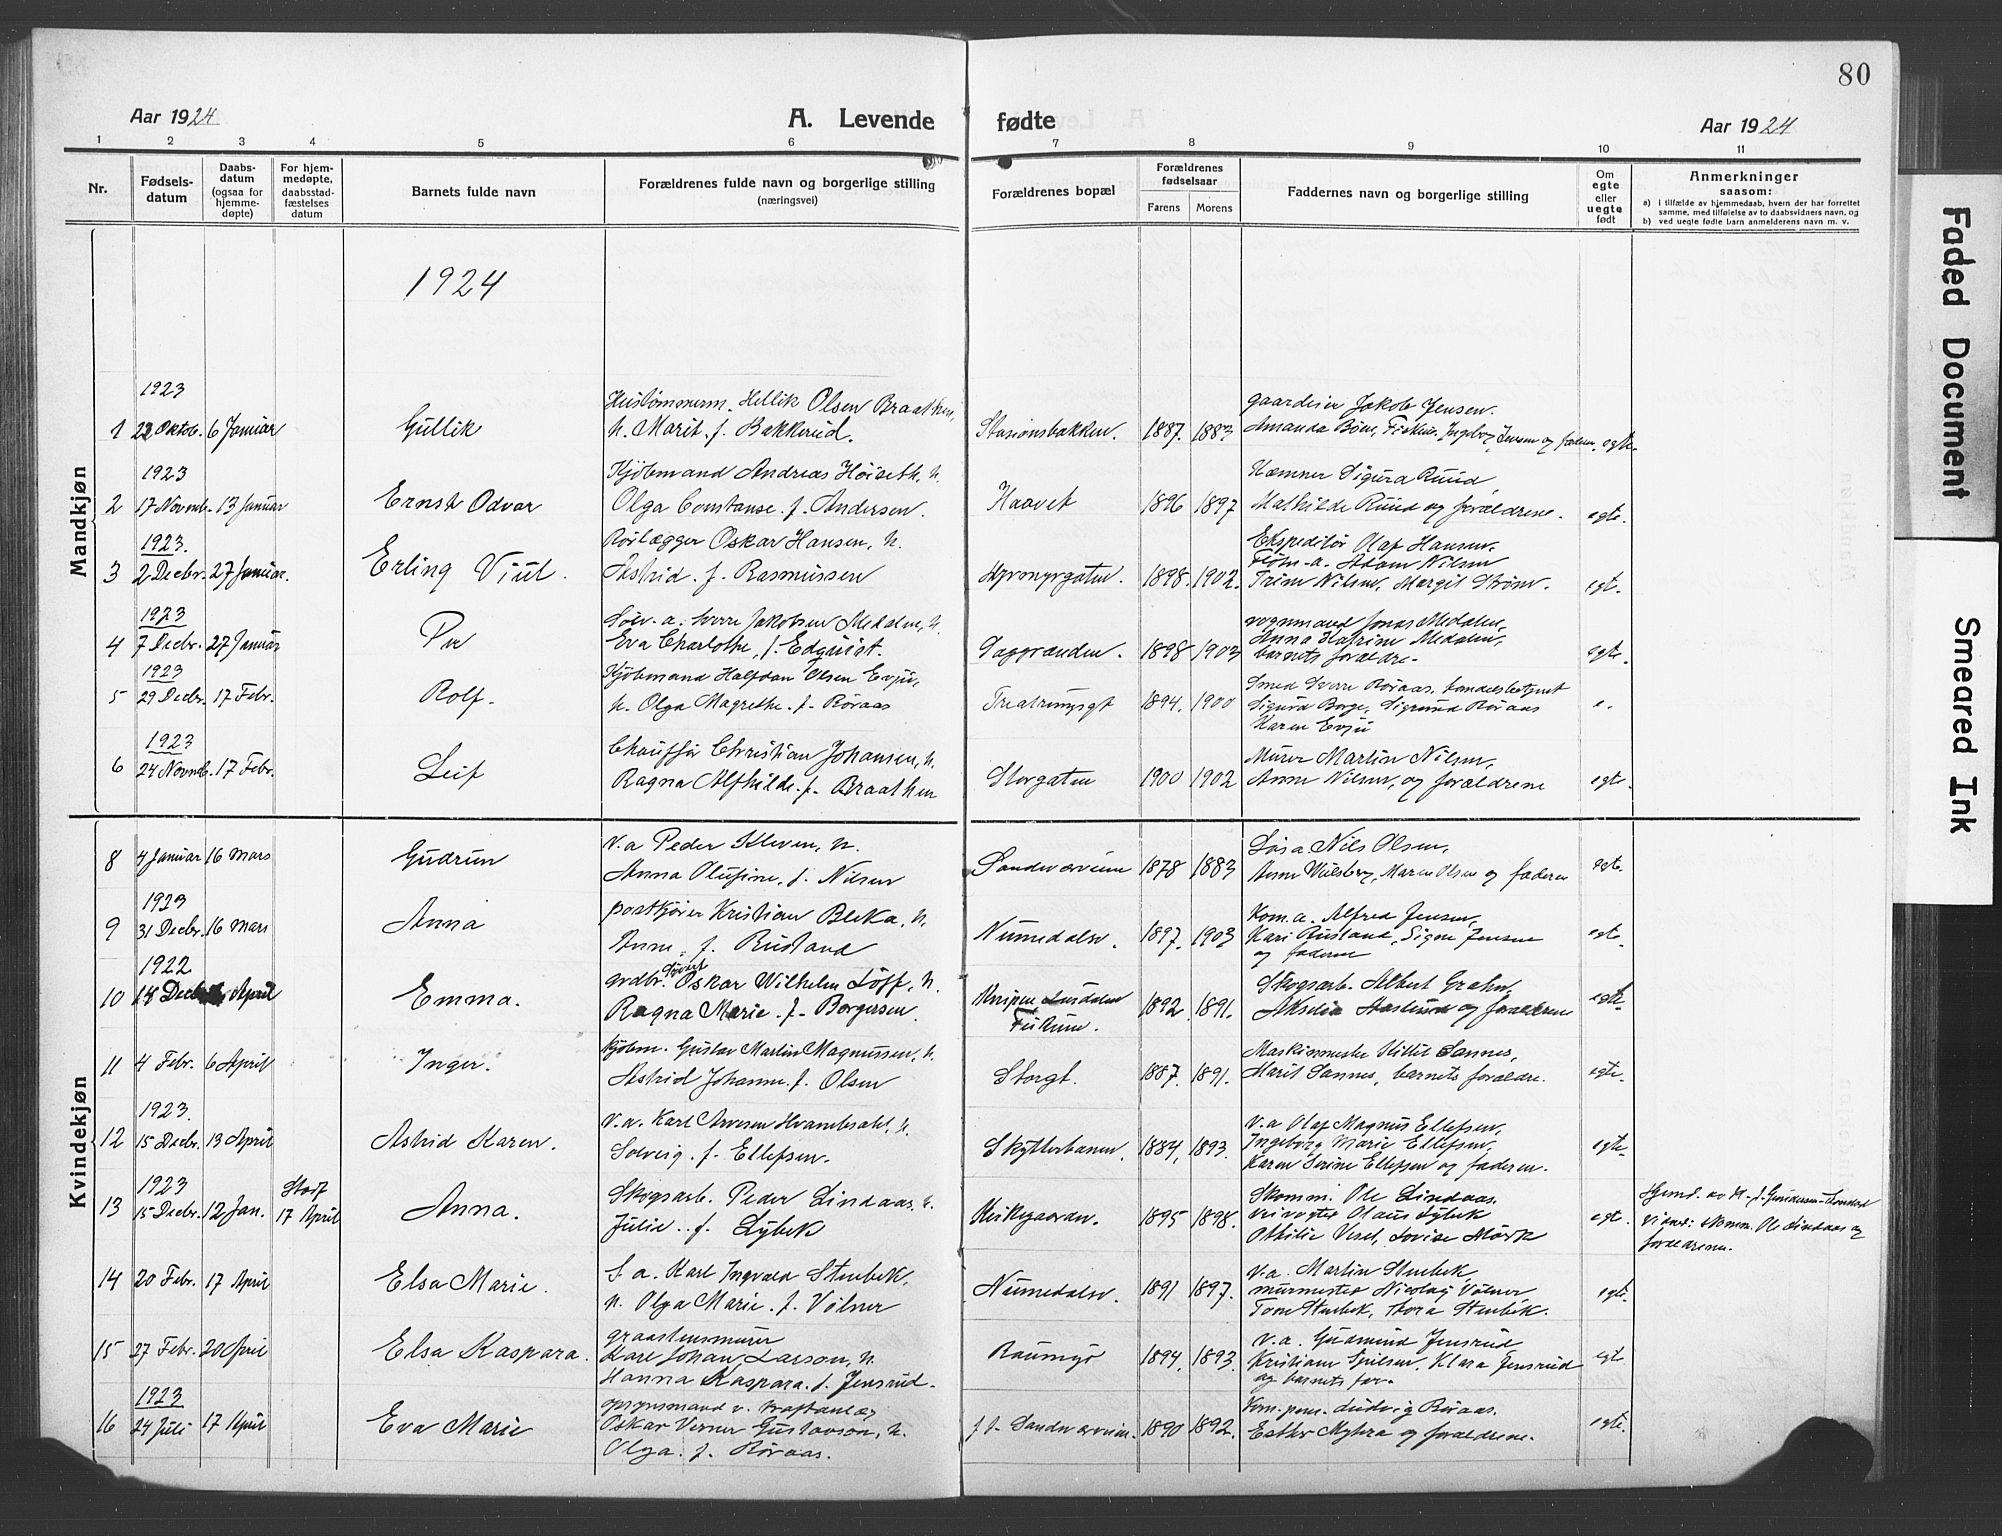 80
Aar 1924
A. Levende fødte
Aar 1924
1 2 3 4 5 6 7 8 9 10 11
Nr.
Fødsels-
datum
Daabs-
datum
(ogsaa for
hjemme-
døpte)
For hjem-
medøpte,
daabsstad-
fæstelses
datum
Barnets fulde navn
Forældrenes fulde navn og borgerlige stilling
(næringsvei)
Forældrenes bopæl
Forældrenes
fødselsaar
Farens Morens
Faddernes navn og borgerlige stilling
Om
egte
eller
uegte
født
Anmerkninger
saasom:
a) i tilfælde av hjemmedaab, hvem der har forrettet
samme, med tilføielse av to daabsvidners navn, og
b) ved uegte fødte barn anmelderens navn m. v.
Mandkjøn
1924
1923
1 22 Oktob. 6 Januar Gullik
Hustømmerm. Hellik Olsen Braathen,
h. Marit. f. Bakkerud.
Stasionsbakken. 1887. 1883
gaardeier Jakob Jensen.
Amanda Ingeborg Jensen og faderen. egte.
1923
2 17 Novmb. 13 Januar Ernst Odvar
Kjøbmand Andreas Høiseth, h.
Olga Constanse. f. Andersen.
Haavet 1896 1897
Kæmner Sigurd Ruud
Mathilde Ruud og forældrene. egte.
1923.
3 2 Decbr. 27 Januar. Erling Viul.
Rørlægger Oskar Hansen, h.
Astrid. f. Rasmussen
Hyrnyrgaten. 1898. 1902.
Ekspeditør Olaf Hansen,
Adam Nilsen
Trine Nilsen, Margit Strøm. egt.
1923
4 7 Decbr. 27 Januar Per
Sølv. a. Sverre Jakobsen Medalen, h.
Eva Charlothe, f. Edquist.
1898 1903
vognmand Jonas Medalen,
Anna Katrine Medalen,
barnets forældre. egte.
1923
5 29 Decbr. 17 Febr. Rolf.
Kjøbmand Halfdan Olsen Evju,
h. Olga Magrethe. f. Røraas
1894. 1900
Smed Sverre Røraas, handelsbetjent
Sigurd Borge, Sigrund Røraas
Karen Evju e.
1923
6 24 Novmb. 17 Febr. Leif
Chauffør Christian Johansen, h.
Ragna Alfhilde. f. Braathen
Storgaten 1900 1902
Murer Martin Nilsen,
Anne Nilsen, og forældrene egte.
Kvindekjøn
8 4 Januar 16 Mars Gudrun
v. a Peder Kleven, h.
Anna Olufine, f. Nilsen
Sandsværveien 1878 1883
Nils Olsen,
Maren Olsen og faderen egte.
1923
9 31 Decbr. 16 Mars Anna
postkjører Kristian Bleka, h.
Anne, f. Rustand
Numedalsv. 1897. 1903
Kom. a. Alfred Jensen,
Kari Rustand, Signe Jensen
og faderen egte.
1922
10 14 Decbr. April Emma.
grdbr. Oskar Wilhelm Løff, h.
Ragna Marie. f. Borgersen.
Knipen
Fiskum. 1892. 1891.
Skogsarb. Albert Grahn,
og forældrene egte.
11 4 Febr. 6 April Inger.
Kjøbm. Gustav Martin Magnussen, h.
Astrid Johanne. f. Olsen
Storgt. 1887. 1891.
Maskinmester Kittil Sannes,
Marit Sannes, barnets forældre. egte.
1923.
12 15 Decbr. 13 April Astrid Karen.
v. a. Karl Arvesen Hvambsahl, h.
Solveig. f. Ellefsen.
Skytterbanen. 1884, 1893.
v. a Olaf Magnus Ellefsen,
Ingeborg Marie Ellefsen,
Karen Serine Ellefsen og faderen. egte.
1923
13 15 Decbr. 12 Jan. Stadf. 17 April Anna.
Skogsarb. Peder Lindaas, h.
Julie. f. Lybek
Kirkegaarden. 1895 1898.
Skomm. Ole Lindaas.
veivogter Olaus Lybek
Othilie Vesel, Lovise Mørk egt.
Hjemd. av
skomm. Ole Lindaas og
forældrene.
14 20 Febr. 17 April Elsa Marie.
S. a. Karl Ingvald Stenbek,
h. Olga Marie. f. Volner
Numedalsv. 1891 1897.
v. a. Martin Stenbek
murmester Nicolay Volner
Tom Stenbek, Thora Stenbek. egte.
15 27 Febr. 20 April Elsa Kaspara.
graastensmurer
Karl Johan Larson, h.
Hanna Kaspara. f. Jensrud.
Raumyr 1894. 1893.
v. a. Gudmund Jensrud
Kristiane Klara Jensrud
og barnets far. egte
1923
16 24 Juli 17 April Eva Marie
opsynsmand v. kraftanlæg
Oskar Verner Gustavson, h.
Olga. f. Røraas.
Sandsværveien. 1890 1892.
Ludvig Røraas.
Esther Myhra og forældrene. egte.
Faded Document
Smeared Ink